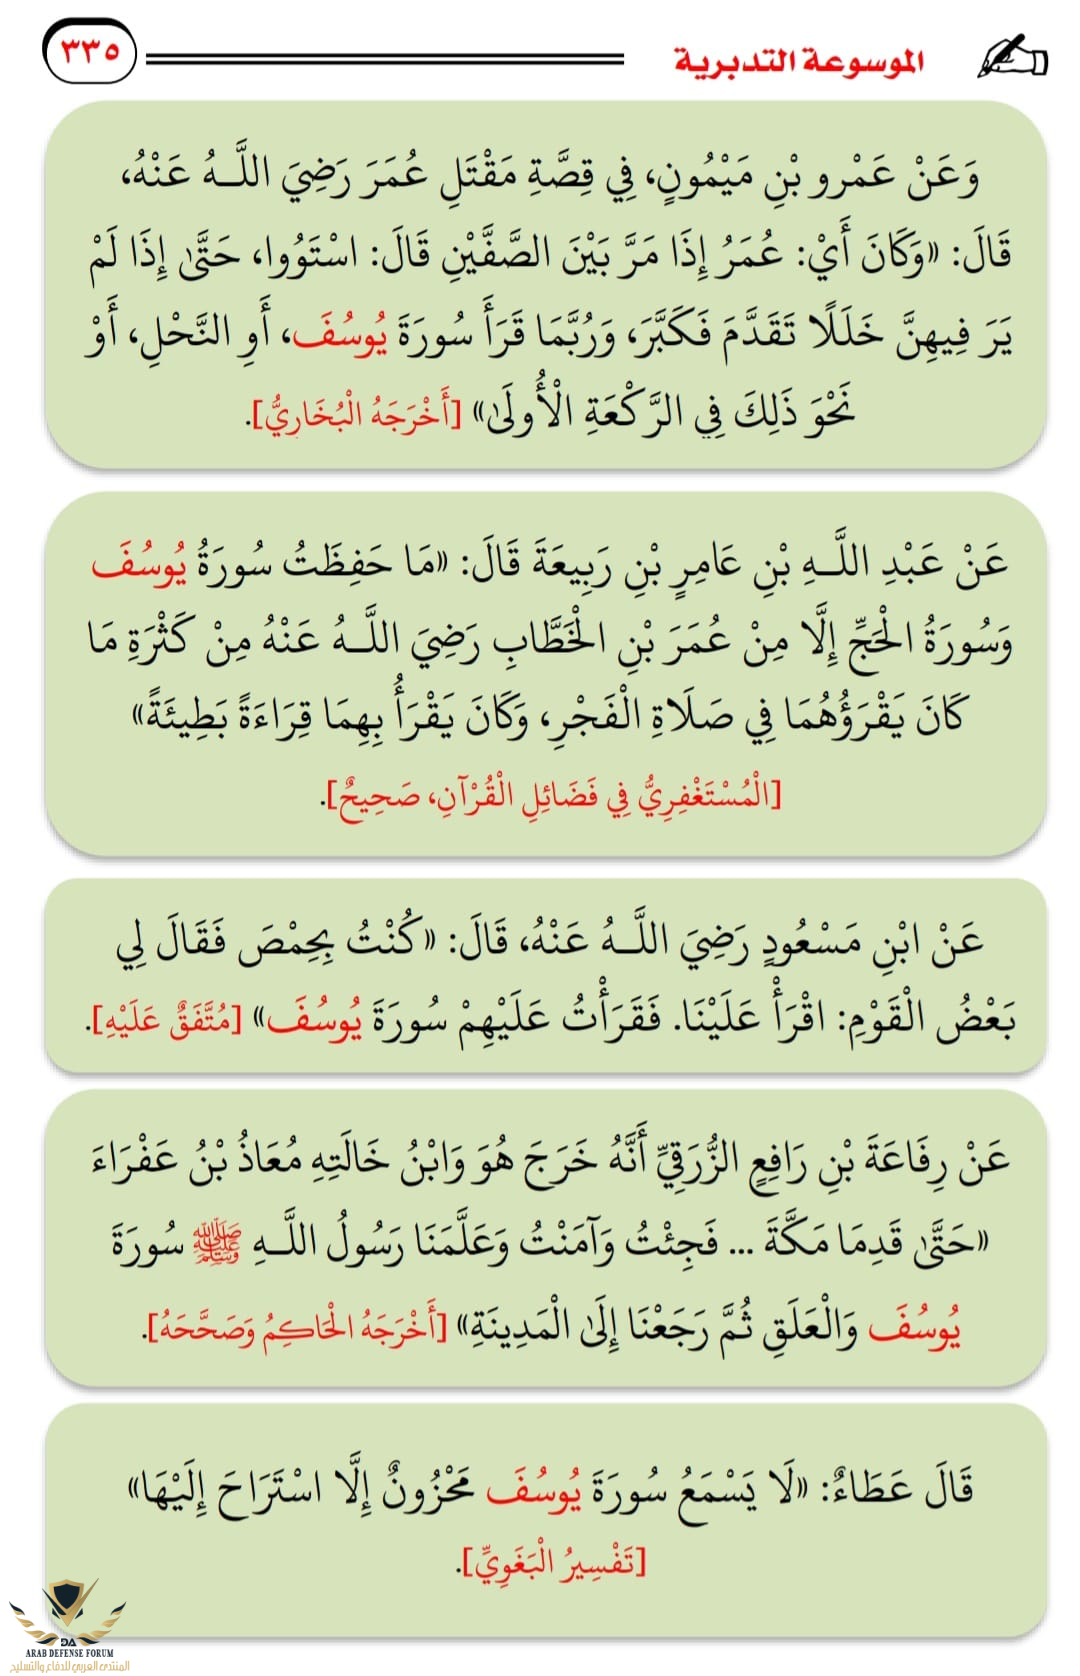 الموسوعة التدبرية
٣٣٥
وَعَنْ عَمْرِو بْنِ مَيْمُونٍ، فِي قِصَّةِ مَقْتَلِ عُمَرَ رَضِيَ اللَّـهُ عَنْهُ،
قَالَ: «وَكَانَ أَيْ: عُمَرُ إِذَا مَرَّ بَيْنَ الصَّفَّيْنِ قَالَ: اسْتَوُوا، حَتَّىٰ إِذَا لَمْ
يَرَ فِيهِنَّ خَلَلًا تَقَدَّمَ فَكَبَّرَ، وَرُبَّمَا قَرَأَ سُورَةَ يُوسُفَ، أَوِ النَّحْلِ، أَوْ
نَحْوَ ذَلِكَ فِي الرَّكْعَةِ الْأُولَىٰ» [أَخْرَجَهُ الْبُخَارِيُّ].
عَنْ عَبْدِ اللَّـهِ بْنِ عَامِرِ بْنِ رَبِيعَةَ قَالَ: «مَا حَفِظَتُ سُورَةُ يُوسُفَ
وَسُورَةُ الْحَجِّ إِلَّا مِنْ عُمَرَ بْنِ الْخَطَّابِ رَضِيَ اللَّـهُ عَنْهُ مِنْ كَثْرَةِ مَا
كَانَ يَقْرَؤُهُمَا فِي صَلَاةِ الْفَجْرِ، وَكَانَ يَقْرَأُ بِهِمَا قِرَاءَةً بَطِيئَةً»
[الْمُسْتَغْفِرِيُّ فِي فَضَائِلِ الْقُرْآنِ، صَحِيحٌ].
عَنْ ابْنِ مَسْعُودٍ رَضِيَ اللَّـهُ عَنْهُ، قَالَ: «كُنْتُ بِحِمْصَ فَقَالَ لِي
بَعْضُ الْقَوْمِ: اقْرَأْ عَلَيْنَا. فَقَرَأْتُ عَلَيْهِمْ سُورَةَ يُوسُفَ» [مُتَّفَقٌ عَلَيْهِ].
عَنْ رِفَاعَةَ بْنِ رَافِعٍ الزُّرَقِيِّ أَنَّهُ خَرَجَ هُوَ وَابْنُ خَالَتِهِ مُعَاذُ بْنُ عَفْرَاءَ
«حَتَّىٰ قَدِمَا مَكَّةَ ... فَجِئْتُ وَآمَنْتُ وَعَلَّمَنَا رَسُولُ اللَّـهِ ﷺ سُورَةَ
يُوسُفَ وَالْعَلَقِ ثُمَّ رَجَعْنَا إِلَىٰ الْمَدِينَةِ» [أَخْرَجَهُ الْحَاكِمُ وَصَحَّحَهُ].
قَالَ عَطَاءٌ: «لَا يَسْمَعُ سُورَةَ يُوسُفَ مَحْزُونٌ إِلَّا اسْتَرَاحَ إِلَيْهَا»
[تَفْسِيرُ الْبَغَوِيِّ].
DA
ARAB DEFENSE FORUM
المنتدى العربي للدفاع والتسليح